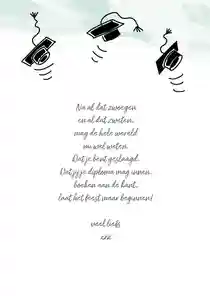 Na al dat zwoegen
en al dat zweten,
mag de hele wereld
nu wel weten.
Dat je bent geslaagd.
Dat jij je diploma mag innen,
boeken aan de kant,
laat het feest maar beginnen!
veel liefs
xxx